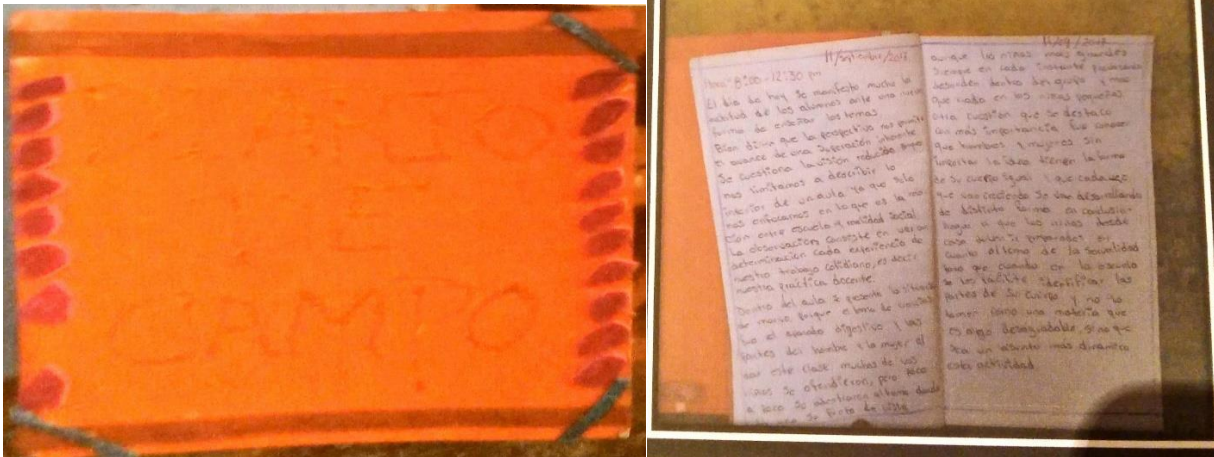 DE
CAMPO
11/Septiembre/2017
Hora: 8:00 - 12:30 pm
El dia de hoy se manifesto mucho la
actitud de los alumnos ante una nueva
forma de enseñar los temas.
Bien dicen que la perspectiva nos permite
el avance de una superación
Se cuestiona la visión reducida
nos limitamos a describir lo
interior de un aula ya que solo
nos enfocamos en lo que es la
ción entre escuela y realidad social
La observación consiste en
determinación cada experiencia de
nuestro trabajo cotidiano, es decir
nuestra práctica docente.
Dentro del aula se presenta
porque el tema de ciencias
fue el aparato digestivo y las
partes del hombre y la mujer al
esta clase muchas de las
niñas se ofendieron, pero poco
a poco se adentraron al tema donde
aunque las niñas mas grandes
siempre en cada instante
desorden dentro del grupo y mas
que nada en las niñas pequeñas
otra cuestión que se destaco
con más importancia fue conocer
que hombres y mujeres sin
importar la idea tienen la forma
de su cuerpo igual y que cada vez
que van creciendo se van desarrollando
de distinta forma, en conclusion
a que las niñas desde
casa
cuanto al tema de la sexualidad
para que cuando en la escuela
se les facilite identificar las
partes de su cuerpo y no lo
tomen como una materia que
es algo desagradable, sino que
sea un asunto más dinámico
cada actividad.